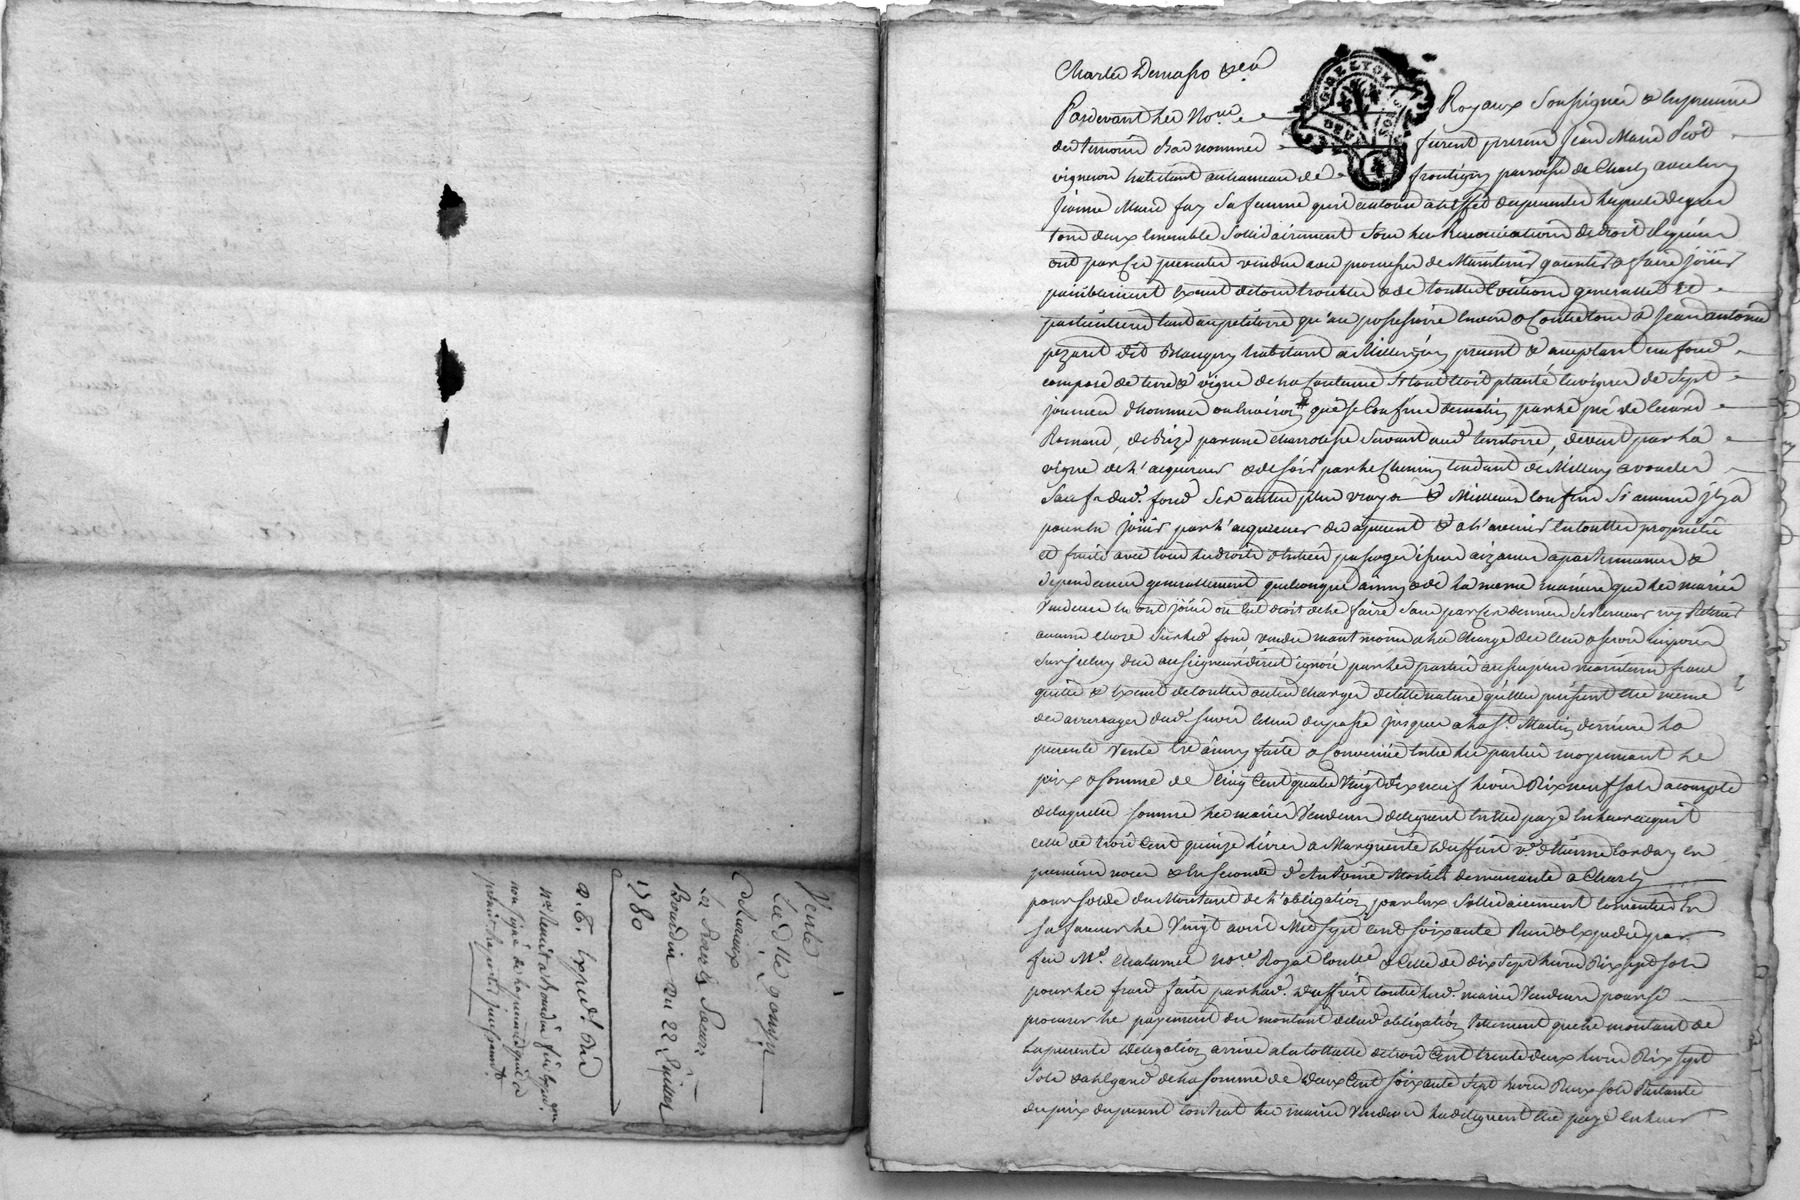 Vente
La dlle gonyn
chavaux
La
Boudin du 22 juillet
1780
a. E. expedt. dud
non signé de la
Charles Demasso &ca
G. DE LYON
DEUX SOLS
Pardevant les Nores Royaux soussignés & en presence
des temoins bas nommés furent presens Jean Marie
vigneron habitant au hameau de frontigny parroisse de Charly avec luy
Jeanne Marie fay sa femme qu'il autorise a l'effet des presentes lesquels de gré
tous deux ensemble sollidairement sous les renonciations de droit requises
ont par ces presentes vendu avec promesse de Maintenir garentir & faire jouir
paisiblement exempt de tous troubles & de touttes evictions generalles &
particulieres tant au petitoire qu'au possessoire envers & contre tous a Jean antoine
pezaret dit habitant a Millery present & acceptant un fond
composé de terre & vigne de la Contenue si tout etoit planté en vignes de sept
journées d'hommes ou environ # qui se confine de matin par le pré de
Romand, de bize par une charrotesse servant aud. territoire, de vent par la
vigne de l'acquereur & de soir par le Chemin tendant de Millery a vourles
sauf dud. fond ses autres plus vrays & Meilleurs confins si aucuns il y a
pour en jouir par l'acquereur des apresent & a l'avenir en toutte proprieté
et fruits avec tous les droits d'entrées passages issues aizances apartenances &
dependances generallement quelconques ainsy & de la meme maniere que les mariés
vendeurs en ont jouit ou eut droit de le faire sans par ces derniers se reserver ny retenir
aucune chose sur led. fond vendu neantmoins a la charge des cens & servis imposés
sur iceluy dus au seigneur direct ignoré par les parties au surplus maintenu franc
quitte & exempt de touttes autres charges de telle nature qu'elles puissent etre meme
des arrerages dud. servis echus du passé jusques a la St. Martin derniere la
presente vente est ainsy faite & convenue entre les parties moyennant le
prix & somme de cinq cent quatre vingt dix neuf livres dix neuf sols acompte
de laquelle somme les mariés vendeurs deleguent etre payé en leur acquit
celle de trois cent quinze livres a Marguerite duffust ve. d'Etienne en
premieres noces & en secondes d'Antoine demeurante a Charly
pour solde du Montant de l'obligation par eux sollidairement consentie en
sa faveur le vingt avril Mil sept cent soixante & expediée par
feu Me. Chalumel nore. Royal controllé & celle de dix sept livres dix sept sols
pour les frais faits par lad. duffust contre led. mariés vendeurs pour se
procurer le payement du montant de lad. obligation tellement que le montant de
la presente delegation arrive a la totalle de trois cent trente deux livres dix sept
sols & a l'egard de la somme de deux cent soixante sept livres deux sols restante
du prix du present contrat les mariés vendeurs la deleguent etre payé en leur